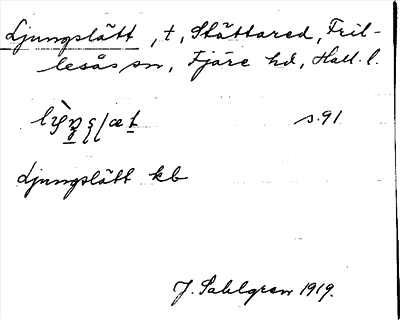 Ljungslätt, t, Stättared, Fril-
lesås sn, Fjäre hd, Hall. l.
s. 91
Ljungslätt kb
J. Sahlgren 1919.